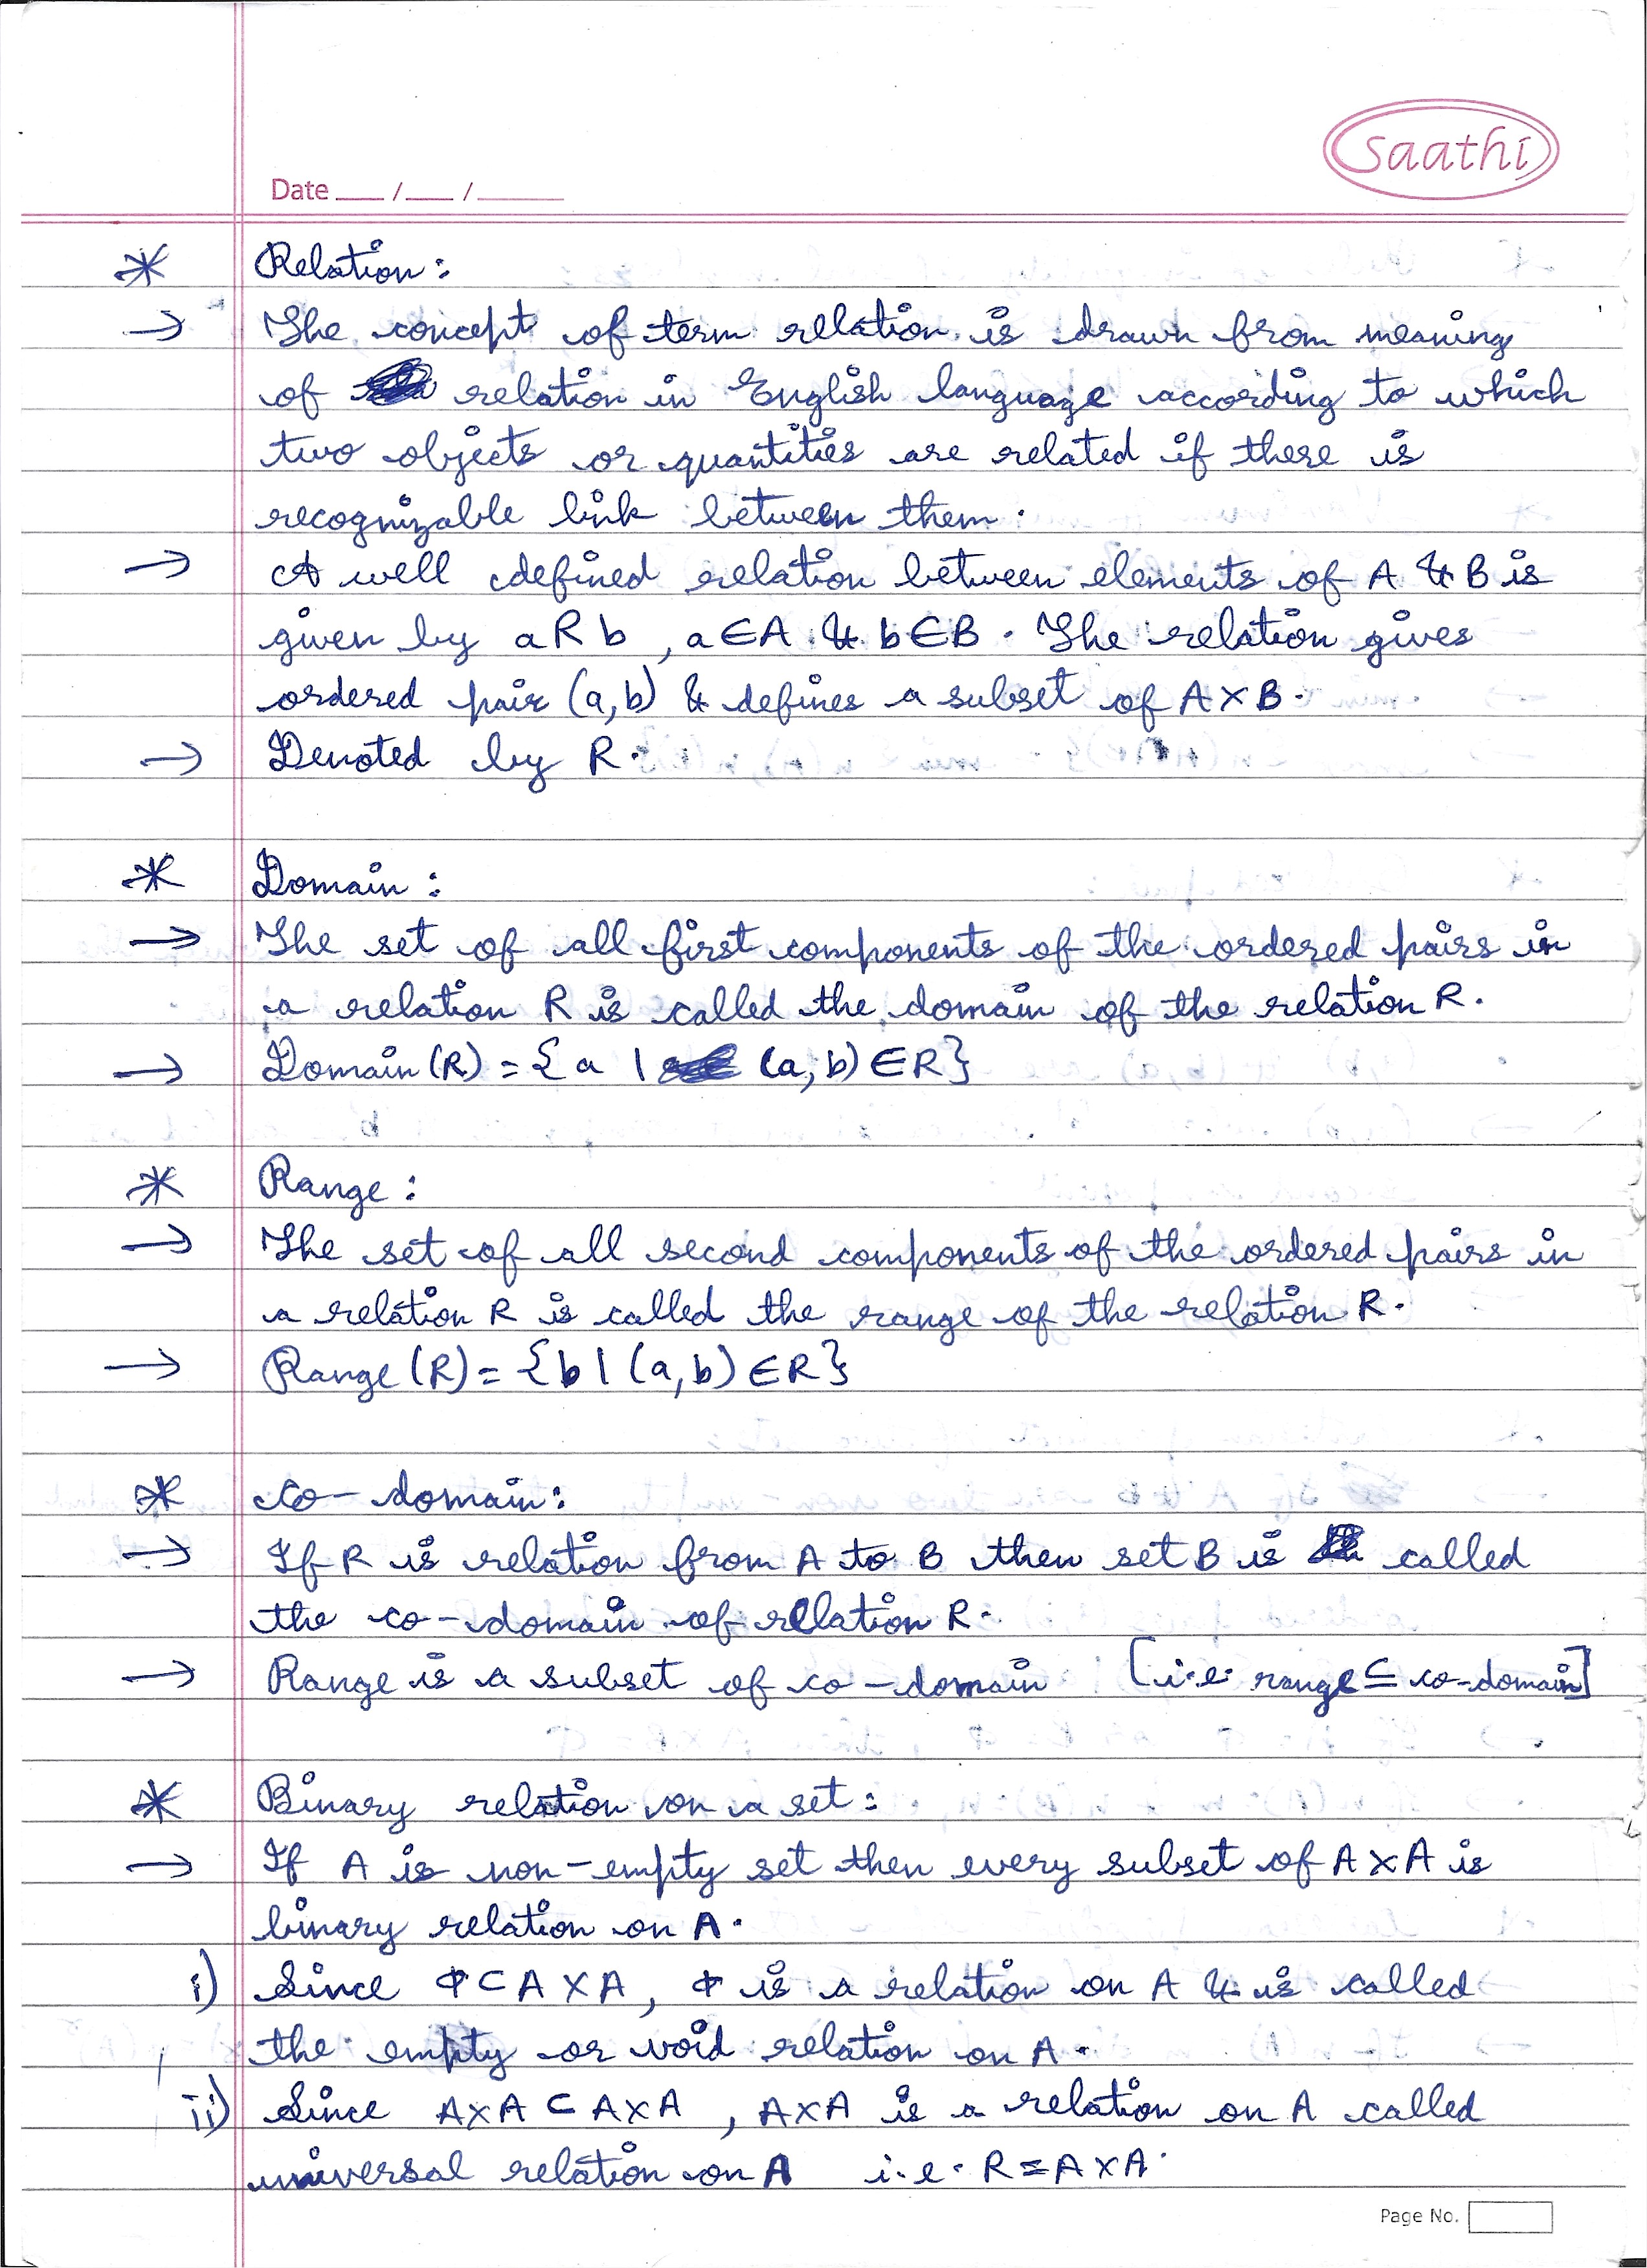 saathi
Date ___ /___ /_____
* Relation:
→ The concept of term relation is drawn from meaning
of relation in English language according to which
two objects or quantities are related if there is
recognizable link between them.
→ A well defined relation between elements of A & B is
given by a R b , a∈A & b∈B. The relation gives
ordered pair (a,b) & defines a subset of A×B.
→ Denoted by R.
* Domain:
→ The set of all first components of the ordered pairs in
a relation R is called the domain of the relation R.
→ Domain (R) = {a | (a, b) ∈R}
* Range:
→ The set of all second components of the ordered pairs in
a relation R is called the range of the relation R.
→ Range (R) = {b | (a, b) ∈R}
* Co-domain:
→ If R is relation from A to B then set B is called
the co-domain of relation R.
→ Range is a subset of co-domain [i.e. range ⊆ co-domain]
* Binary relation on a set:
→ If A is non-empty set then every subset of A×A is
binary relation on A.
i) Since ϕ⊂A×A, ϕ is a relation on A & is called
the empty or void relation on A.
ii) Since A×A ⊂ A×A , A×A is a relation on A called
universal relation on A i.e. R=A×A.
Page No.